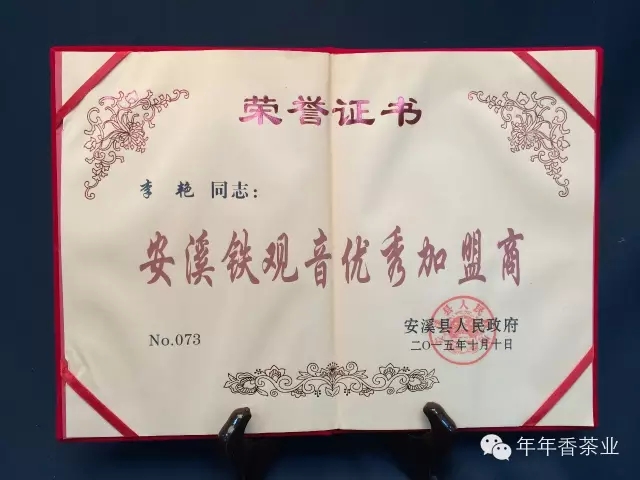 荣誉证书
李艳 同志：
安溪铁观音优秀加盟商
No.073
安溪县人民政府
二〇一五年十月十日
年年香茶业